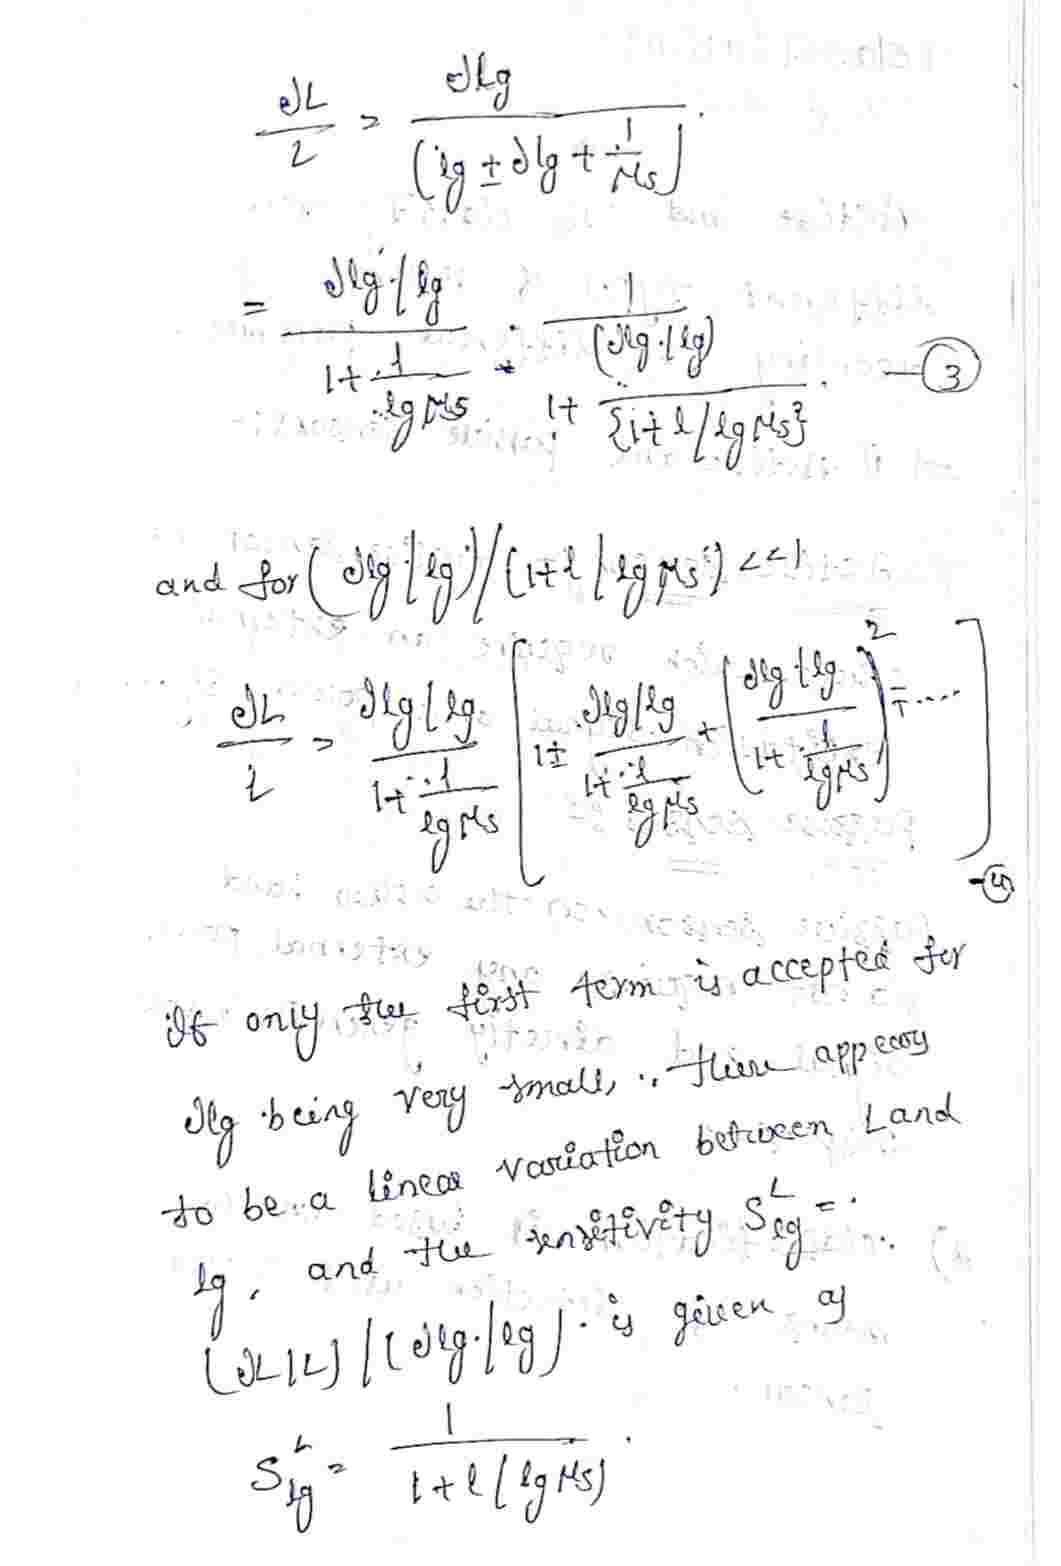 ∂L/L = ∂lg / (lg ± ∂lg + 1/μs).
= (∂lg/lg) / (1 + 1/(lgμs)) · 1 / (1 + (∂lg/lg)/{1+l/lgμs}). —③
and for (∂lg/lg)/(1+l/lgμs) <<1
∂L/L = (∂lg/lg)/(1 + 1/(lgμs)) [1 ± (∂lg/lg)/(1 + l/(lgμs)) + ((∂lg/lg)/(1 + 1/(lgμs)))² ∓ ....] -④
If only the first term is accepted for
∂lg being very small, ∴ there appears
to be a linear variation between L and
lg, and the sensitivity S^L_lg =
(∂L/L)/(∂lg/lg) is given as
S^L_lg = 1 / (1+l/(lgμs)).